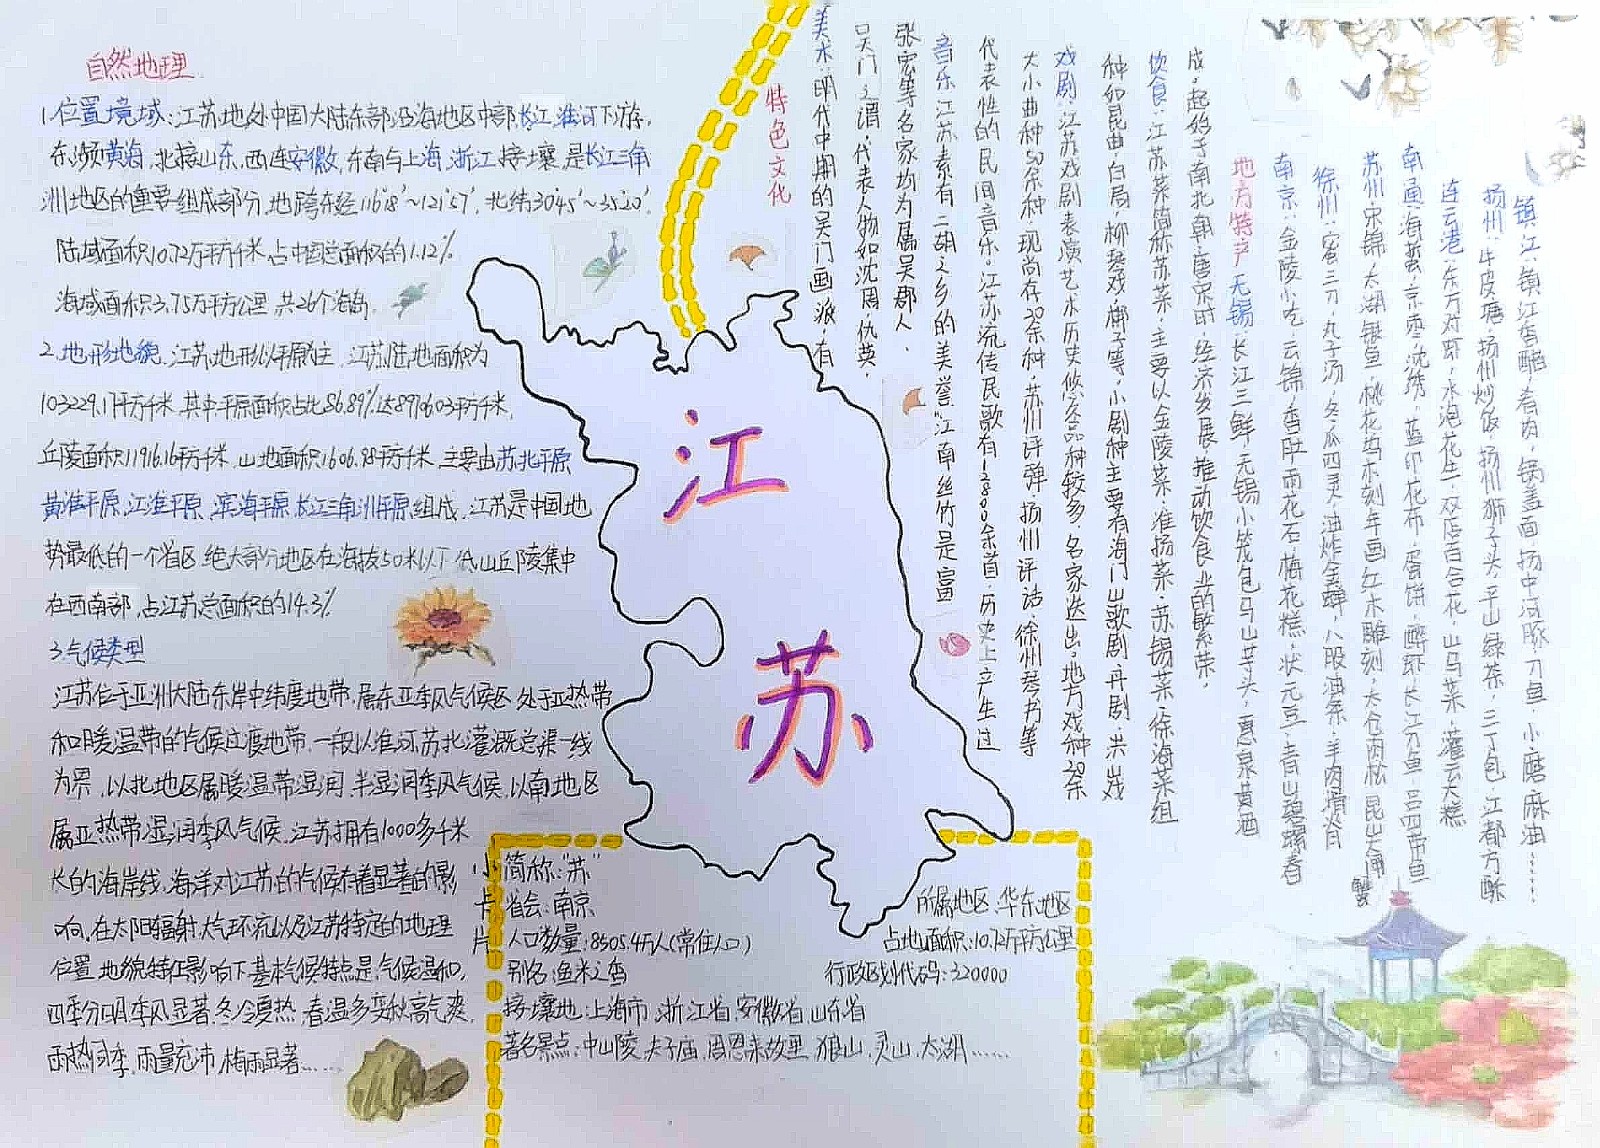 自然地理
1.位置境域:江苏地处中国大陆东部沿海地区中部,长江、淮河下游,
东濒黄海,北接山东,西连安徽,东南与上海、浙江接壤,是长江三角
洲地区的重要组成部分,地跨东经116°18′~121°57′,北纬30°45′~35°20′.
陆域面积10.72万平方千米,占中国总面积的1.12%
海域面积3.75万平方公里,共26个海岛.
2.地形地貌.江苏地形以平原为主,江苏陆地面积为
103229.17平方千米.其中平原面积占比86.89%,达89706.03平方千米,
丘陵面积11916.16平方千米,山地面积1606.98平方千米.主要由苏北平原
黄淮平原,江淮平原,滨海平原,长江三角洲平原组成,江苏是中国地
势最低的一个省区,绝大部分地区在海拔50米以下,低山丘陵集中
在西南部,占江苏总面积的14.3%
3.气候类型
江苏位于亚洲大陆东岸中纬度地带,属东亚季风气候区,处于亚热带
和暖温带的气候过渡地带.一般以淮河、苏北灌溉总渠一线
为界,以北地区属暖温带湿润、半湿润季风气候,以南地区
属亚热带湿润季风气候,江苏拥有1000多千米
长的海岸线,海洋对江苏的气候有着显著的影
响.在太阳辐射、大气环流以及江苏特定的地理
位置、地貌特征影响下,基本气候特点是:气候温和,
四季分明,季风显著,冬冷夏热,春温多变,秋高气爽,
雨热同季,雨量充沛,梅雨显著……
江
苏
小卡片
简称:“苏”
省会:南京
人口数量:8505.4万人(常住人口)
别名:鱼米之乡
接壤地:上海市,浙江省,安徽省,山东省
著名景点:中山陵,夫子庙,周恩来故里,狼山,灵山,太湖……
所属地区:华东地区
占地面积:10.72万平方公里
行政区划代码:320000
特色文化
美术:明代中期的吴门画派,有
吴门之谓,代表人物如沈周、仇英,
张宏等名家均为属吴郡人.
音乐:江苏素有二胡之乡的美誉“江南丝竹”是富
代表性的民间音乐,江苏流传民歌有12800余首,历史上产生过
大小曲种50余种,现尚存20余种,苏州评弹,扬州评话,徐州琴书等
戏剧:江苏戏剧表演艺术历史悠久,品种较多,名家迭出,地方戏种20余
种如昆曲,白局,柳琴戏,梆子等,小剧种主要有海门山歌剧,丹剧,淮戏
饮食:江苏菜简称苏菜,主要以金陵菜,淮扬菜,苏锡菜,徐海菜组
成,起始于南北朝、唐宋时,经济发展,推动饮食业的繁荣,
地方特产 无锡:长江三鲜,无锡小笼包,马山芋头,惠泉黄酒
南京:金陵小吃,云锦,香肚,雨花石,梅花糕,状元豆,青山碧螺春
徐州:蜜三刀,丸子汤,冬瓜四灵,油炸金蝉,八股油条,羊肉
苏州:宋锦,太湖银鱼,桃花坞木刻年画,红木雕刻,太仓肉松,昆山大闸蟹
南通:海蜇,京枣,沈绣,蓝印花布,蛋饼,醉虾,长江刀鱼,吕四带鱼
连云港:东方对虾,水泡花生,双店百合花,山马菜,灌云大糕
扬州:牛皮糖,扬州炒饭,扬州狮子头,平山绿茶,三丁包,江都方酥
镇江:镇江香醋,肴肉,锅盖面,扬中河豚,刀鱼,小磨麻油……